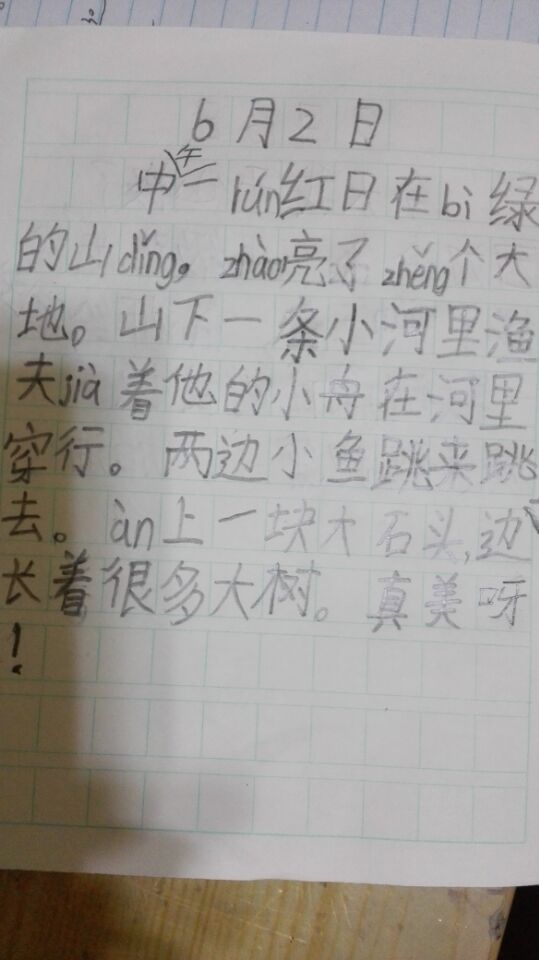 6月2日
中午一lún红日在bì绿
的山dǐng。zhào亮了zhěng个大
地。山下一条小河里渔
夫jià着他的小舟在河里
穿行。两边小鱼跳来跳
去。àn上一块大石头,边
长着很多大树。真美呀
!